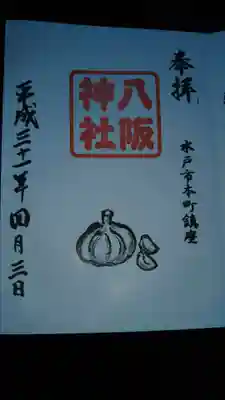 奉拝
水戸市本町鎮座
八阪
神社
平成三十一年四月三日